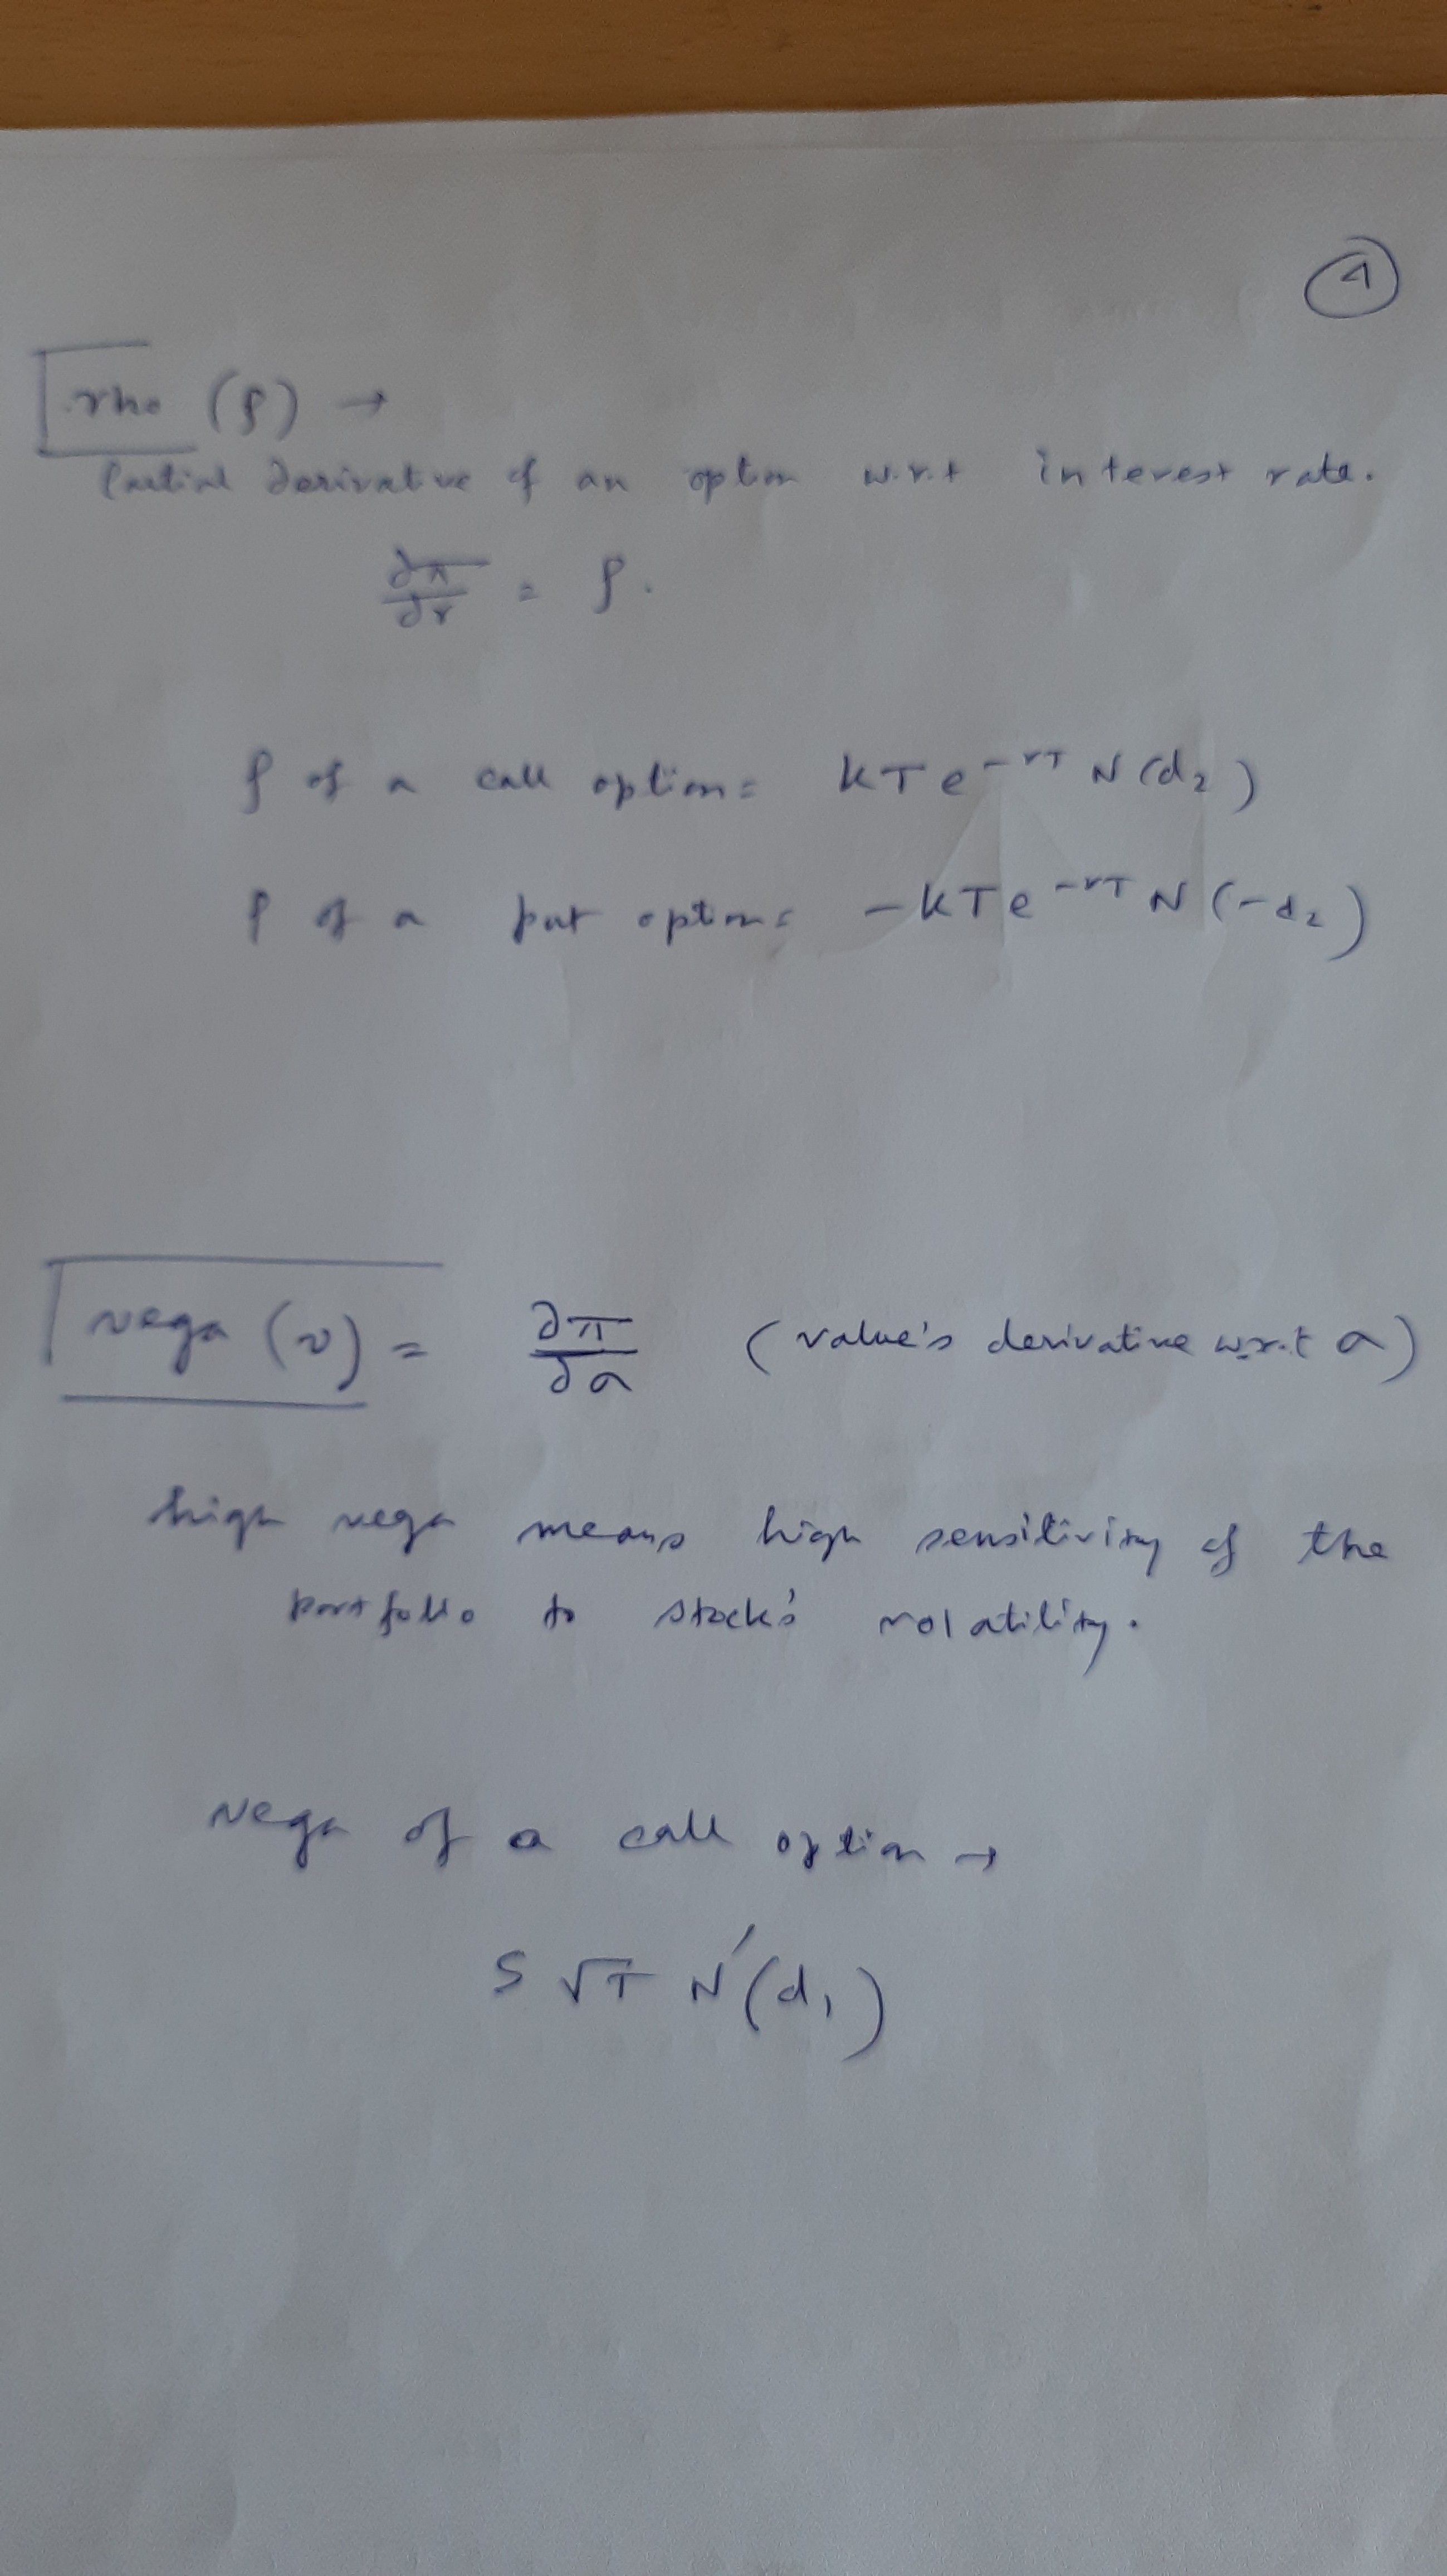 4
rho (ρ) →
Partial derivative of an option w.r.t interest rate.
∂π/∂r = ρ.
ρ of a call option = KTe^-rT N(d₂)
ρ of a put option = -KTe^-rT N(-d₂)
vega (ν) = ∂π/∂σ (value's derivative w.r.t σ)
high vega means high sensitivity of the
portfolio to stock's volatility.
Vega of a call option →
S √T N'(d₁)